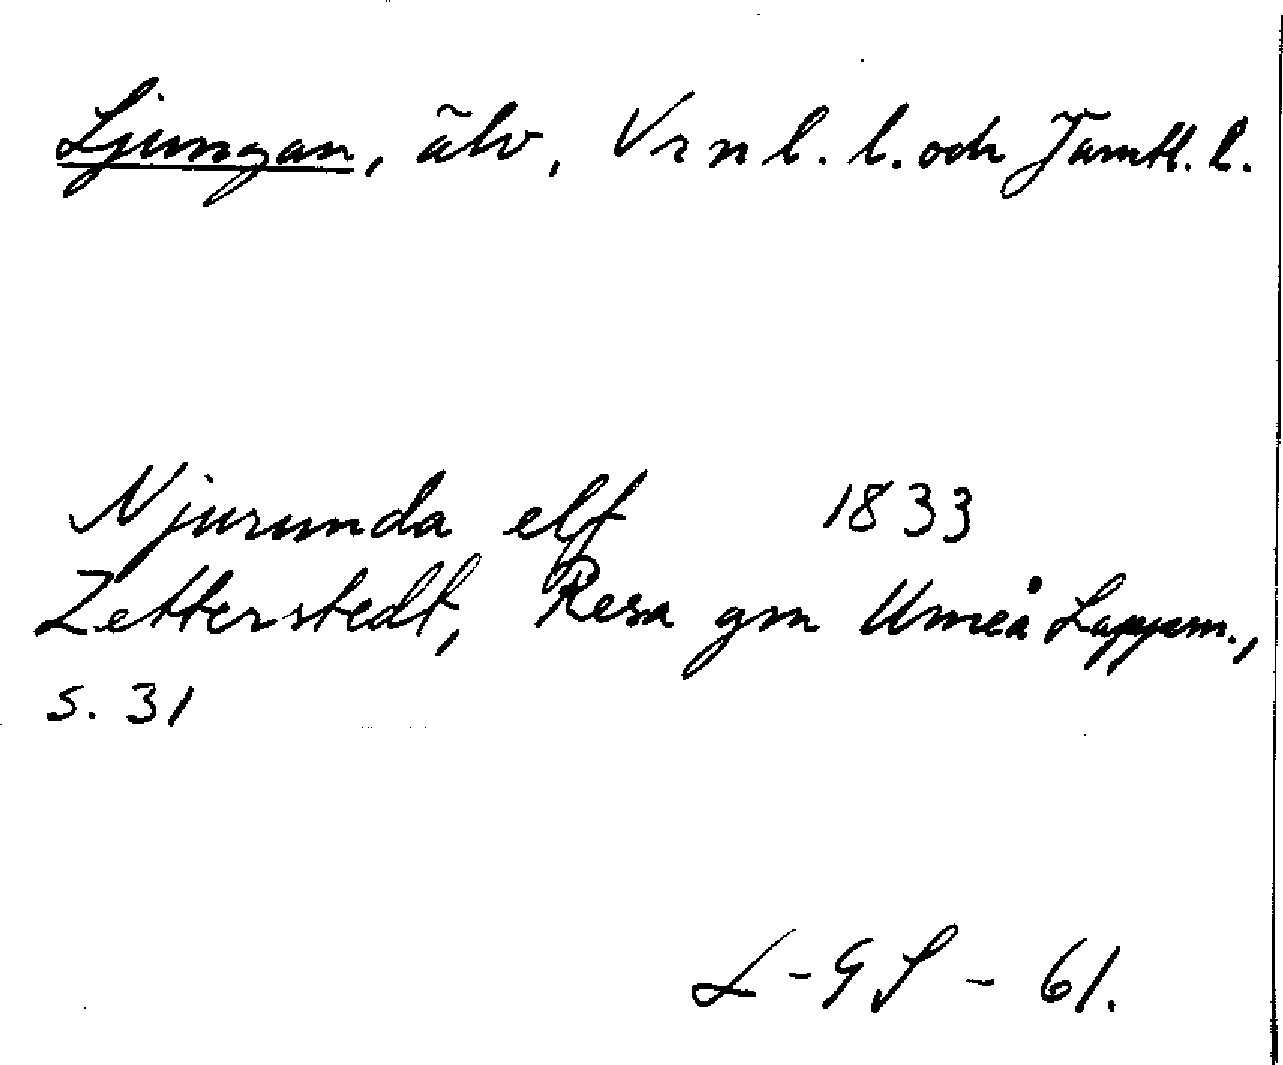 Ljungan, älv, Vrnl. l. och Jämtl. l.
Njurunda elf 1833
Zetterstedt, Resa gm Umeå Lappm.,
s. 31
L-GS - 61.